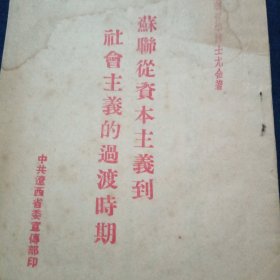 士尤金著
蘇聯從資本主義到
社會主義的過渡時期
中共遼西省委宣傳部印